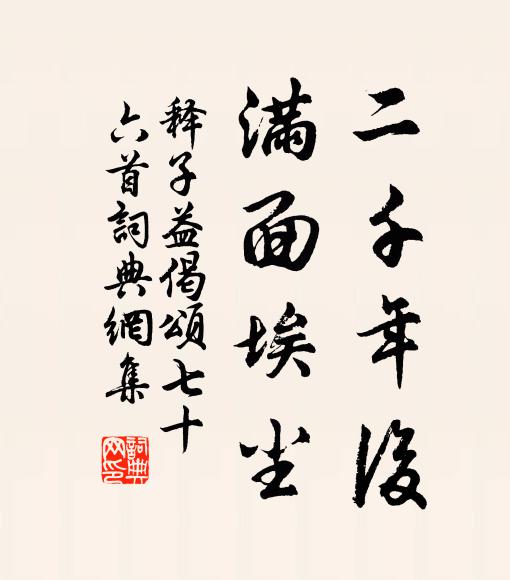 二千年後
滿面埃尘
释子益偈頌七十
六首詞典網集
詞典網印